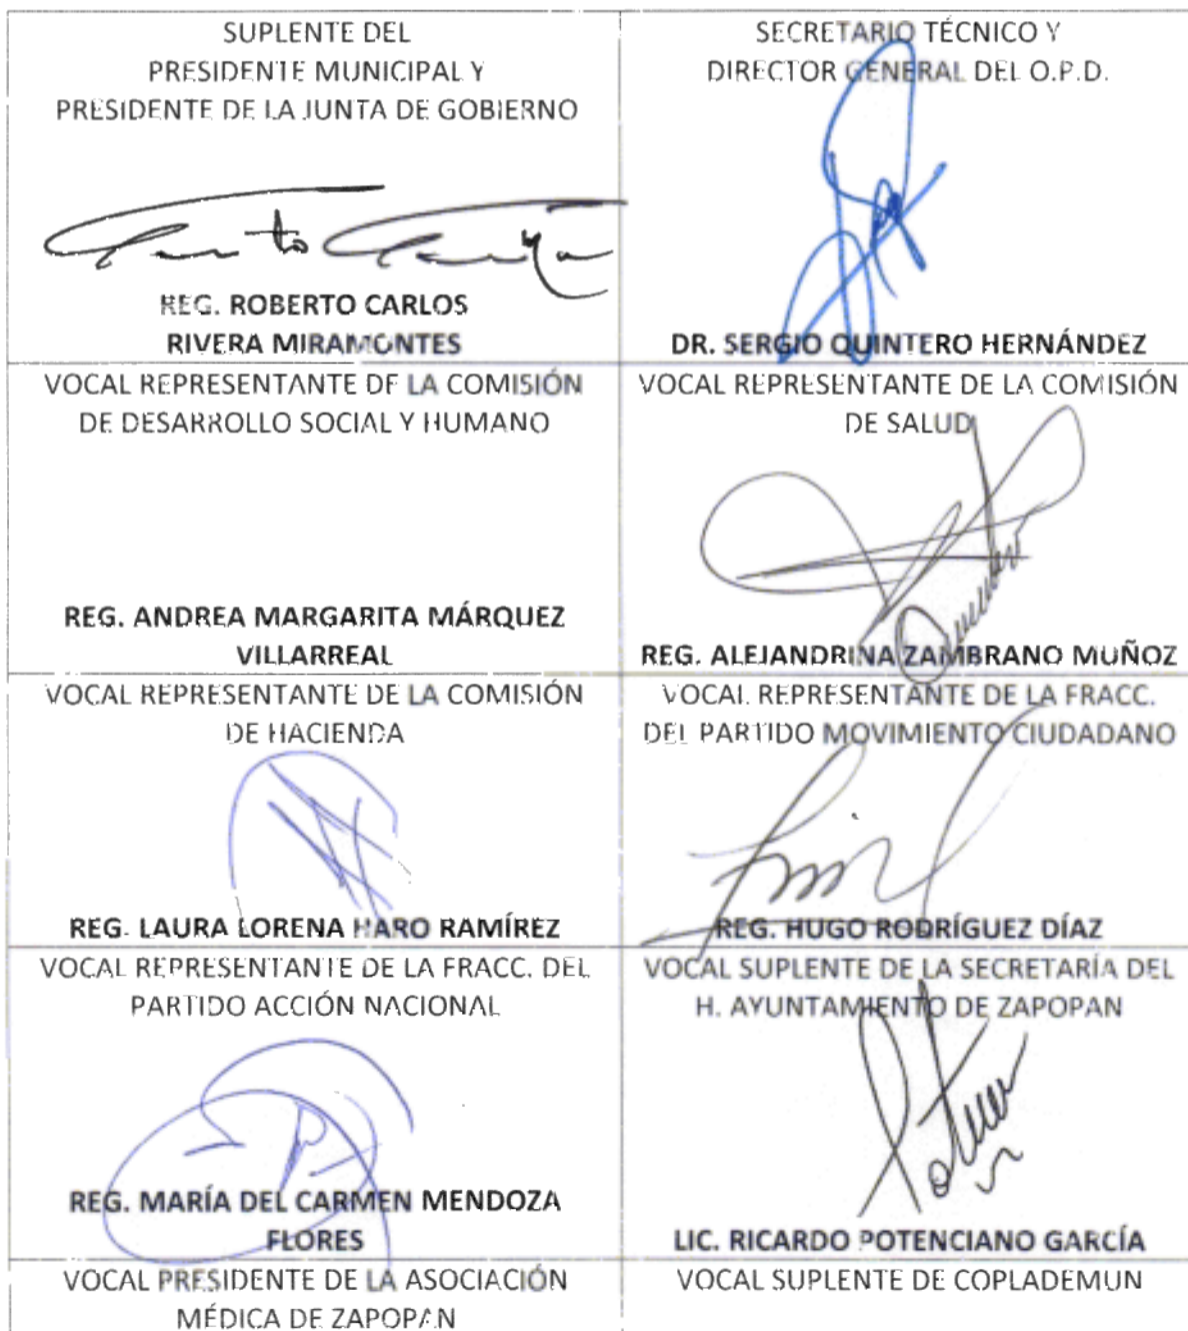 SUPLENTE DEL
PRESIDENTE MUNICIPAL Y
PRESIDENTE DE LA JUNTA DE GOBIERNO
REG. ROBERTO CARLOS
RIVERA MIRAMONTES
SECRETARIO TÉCNICO Y
DIRECTOR GENERAL DEL O.P.D.
DR. SERGIO QUINTERO HERNÁNDEZ
VOCAL REPRESENTANTE DE LA COMISIÓN
DE DESARROLLO SOCIAL Y HUMANO
REG. ANDREA MARGARITA MÁRQUEZ
VILLARREAL
VOCAL REPRESENTANTE DE LA COMISIÓN
DE SALUD
REG. ALEJANDRINA ZAMBRANO MUÑOZ
VOCAL REPRESENTANTE DE LA COMISIÓN
DE HACIENDA
REG. LAURA LORENA HARO RAMÍREZ
VOCAL REPRESENTANTE DE LA FRACC.
DEL PARTIDO MOVIMIENTO CIUDADANO
REG. HUGO RODRÍGUEZ DÍAZ
VOCAL REPRESENTANTE DE LA FRACC. DEL
PARTIDO ACCIÓN NACIONAL
REG. MARÍA DEL CARMEN MENDOZA
FLORES
VOCAL SUPLENTE DE LA SECRETARÍA DEL
H. AYUNTAMIENTO DE ZAPOPAN
LIC. RICARDO POTENCIANO GARCÍA
VOCAL PRESIDENTE DE LA ASOCIACIÓN
MÉDICA DE ZAPOPAN
VOCAL SUPLENTE DE COPLADEMUN